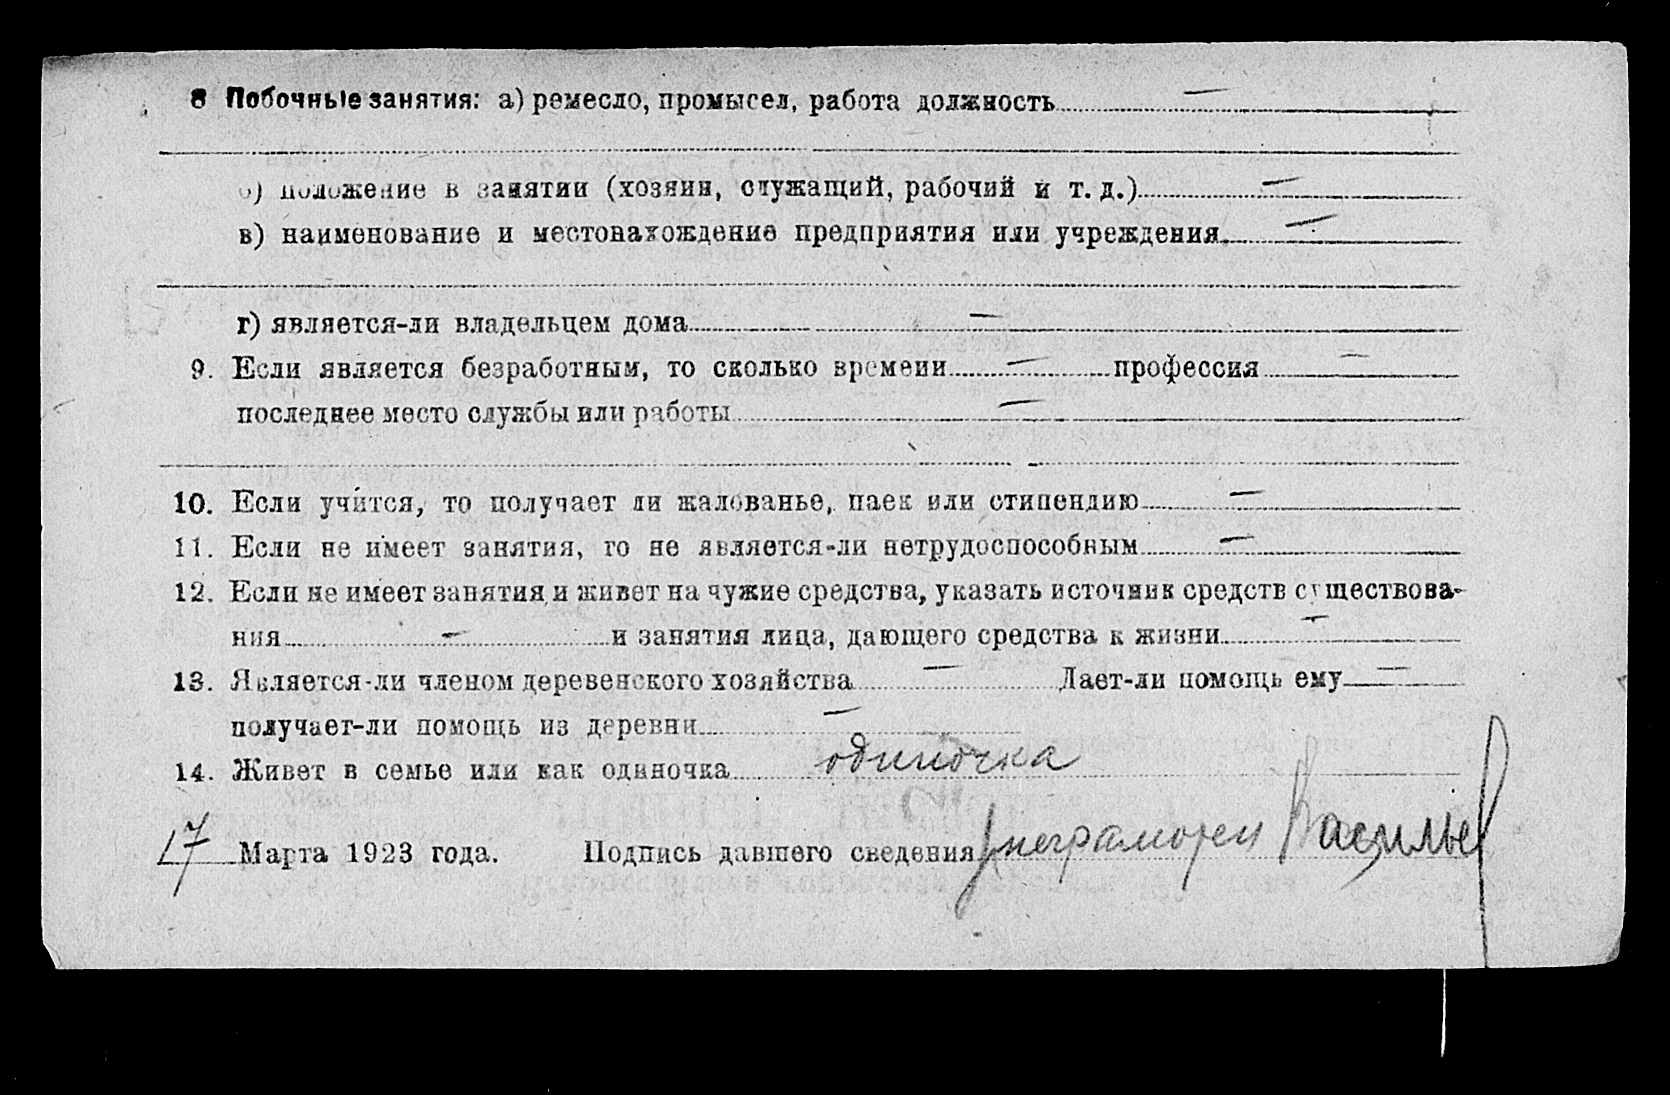 8 Побочные занятия: а) ремесло, промысел, работа должность —
б) положение в занятии (хозяин, служащий, рабочий и т. д.) —
в) наименование и местонахождение предприятия или учреждения —
г) является-ли владельцем дома —
9. Если является безработным, то сколько времени — профессия —
последнее место службы или работы —
10. Если учится, то получает ли жалованье, паек или стипендию —
11. Если не имеет занятия, то не является-ли нетрудоспособным —
12. Если не имеет занятия и живет на чужие средства, указать источник средств существова-
ния — и занятия лица, дающего средства к жизни —
13. Является-ли членом деревенского хозяйства — Дает-ли помощь ему —
получает-ли помощь из деревни —
14. Живет в семье или как одиночка одиночка
17 Марта 1923 года. Подпись давшего сведения неграмотен